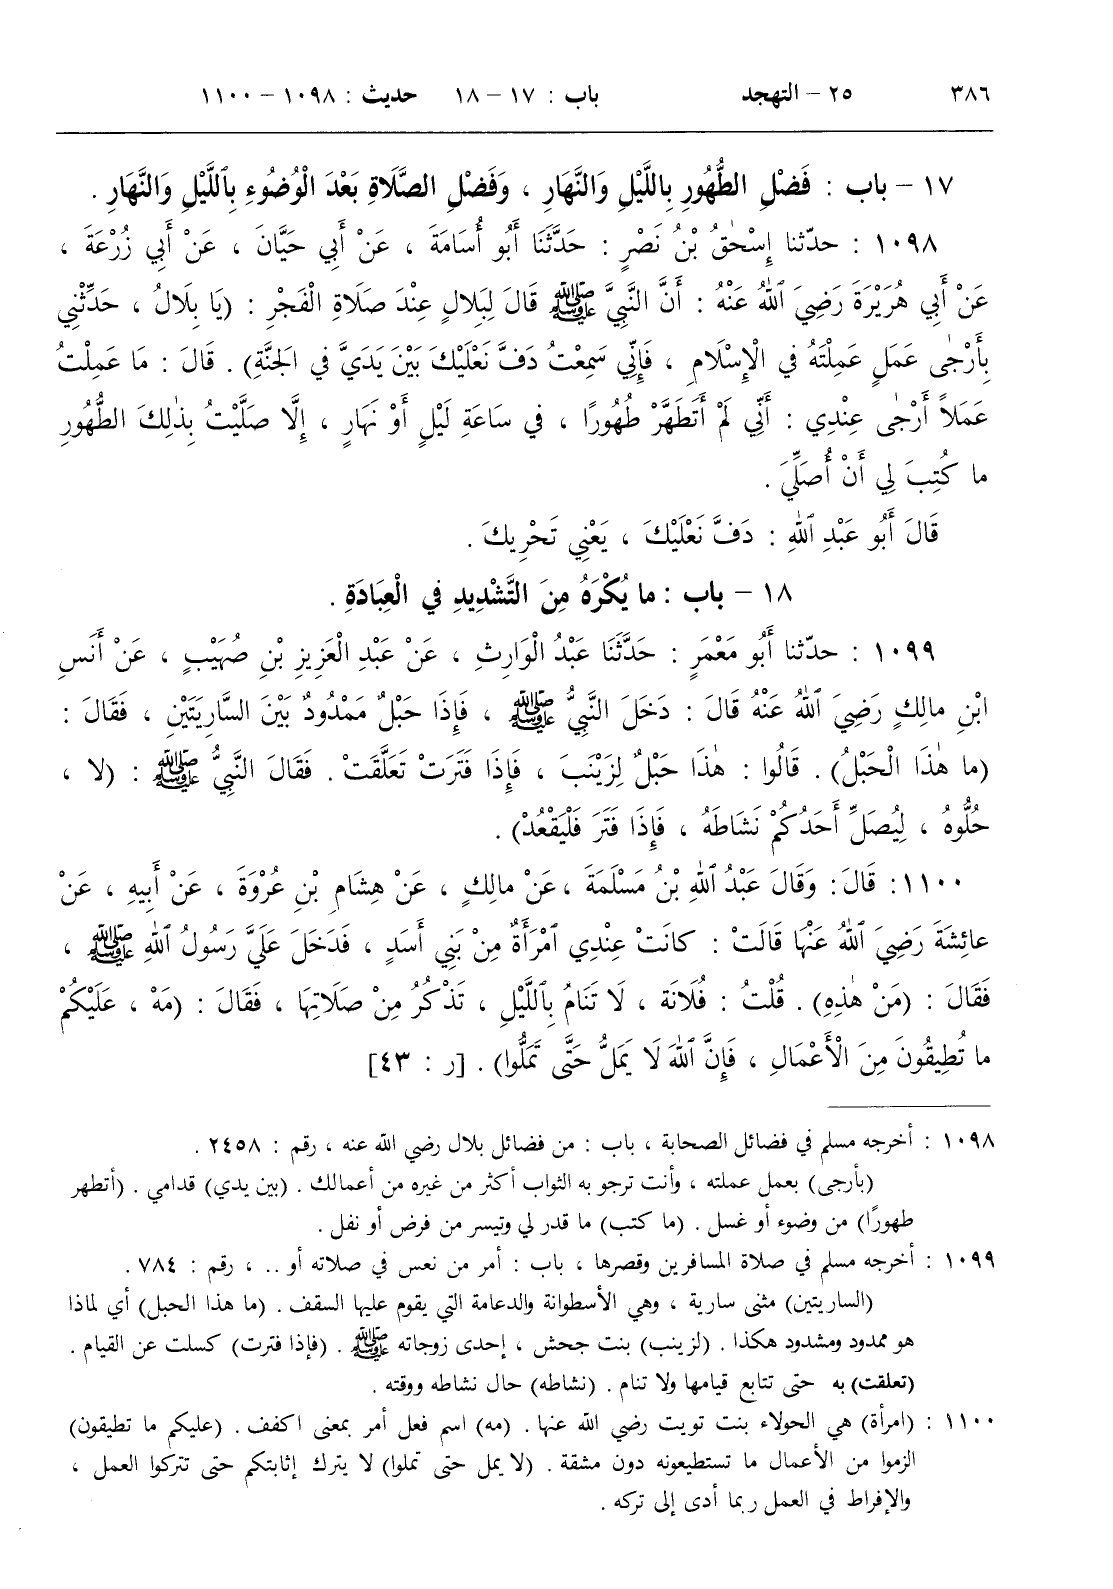 ٣٨٦ ٢٥ – التهجد باب : ١٧ – ١٨ حديث : ١٠٩٨ – ١١٠٠
١٧ – باب : فَضْلِ الطُّهُورِ بِاللَّيْلِ وَالنَّهَارِ ، وَفَضْلِ الصَّلَاةِ بَعْدَ الْوُضُوءِ بِٱللَّيْلِ وَالنَّهَارِ .
١٠٩٨ : حدّثنا إِسْحٰقُ بْنُ نَصْرٍ : حَدَّثَنَا أَبُو أُسَامَةَ ، عَنْ أَبِي حَيَّانَ ، عَنْ أَبِي زُرْعَةَ ،
عَنْ أَبِي هُرَيْرَةَ رَضِيَ ٱللّٰهُ عَنْهُ : أَنَّ النَّبِيَّ ﷺ قَالَ لِبِلَالٍ عِنْدَ صَلَاةِ الْفَجْرِ : (يَا بِلَالُ ، حَدِّثْنِي
بِأَرْجٰى عَمَلٍ عَمِلْتَهُ فِي الْإِسْلَامِ ، فَإِنِّي سَمِعْتُ دَفَّ نَعْلَيْكَ بَيْنَ يَدَيَّ فِي الجَنَّةِ) . قَالَ : مَا عَمِلْتُ
عَمَلاً أَرْجٰى عِنْدِي : أَنِّي لَمْ أَتَطَهَّرْ طُهُورًا ، فِي سَاعَةِ لَيْلٍ أَوْ نَهَارٍ ، إِلَّا صَلَّيْتُ بِذٰلِكَ الطُّهُورِ
ما كُتِبَ لِي أَنْ أُصَلِّيَ .
قَالَ أَبُو عَبْدِ ٱللّٰهِ : دَفَّ نَعْلَيْكَ ، يَعْنِي تَحْرِيكَ .
١٨ – باب : ما يُكْرَهُ مِنَ التَّشْدِيدِ فِي الْعِبَادَةِ .
١٠٩٩ : حدّثنا أَبُو مَعْمَرٍ : حَدَّثَنَا عَبْدُ الْوَارِثِ ، عَنْ عَبْدِ الْعَزِيزِ بْنِ صُهَيْبٍ ، عَنْ أَنَسِ
ابْنِ مالِكٍ رَضِيَ ٱللّٰهُ عَنْهُ قَالَ : دَخَلَ النَّبِيُّ ﷺ ، فَإِذَا حَبْلٌ مَمْدُودٌ بَيْنَ السَّارِيَتَيْنِ ، فَقَالَ :
(ما هٰذَا الْحَبْلُ) . قَالُوا : هٰذَا حَبْلٌ لِزَيْنَبَ ، فَإِذَا فَتَرَتْ تَعَلَّقَتْ . فَقَالَ النَّبِيُّ ﷺ : (لا ،
حُلُّوهُ ، لِيُصَلِّ أَحَدُكُمْ نَشَاطَهُ ، فَإِذَا فَتَرَ فَلْيَقْعُدْ) .
١١٠٠: قَالَ: وَقَالَ عَبْدُ ٱللّٰهِ بْنُ مَسْلَمَةَ ، عَنْ مالِكٍ ، عَنْ هِشَامِ بْنِ عُرْوَةَ ، عَنْ أَبِيهِ ، عَنْ
عائِشَةَ رَضِيَ ٱللّٰهُ عَنْهَا قَالَتْ : كانَتْ عِنْدِي ٱمْرَأَةٌ مِنْ بَنِي أَسَدٍ ، فَدَخَلَ عَلَيَّ رَسُولُ ٱللّٰهِ ﷺ ،
فَقَالَ : (مَنْ هٰذِهِ) . قُلْتُ : فُلَانَة ، لَا تَنَامُ بِٱللَّيْلِ ، تَذْكُرُ مِنْ صَلَاتِهَا ، فَقَالَ : (مَهْ ، عَلَيْكُمْ
ما تُطِيقُونَ مِنَ الْأَعْمَالِ ، فَإِنَّ ٱللّٰهَ لَا يَمَلُّ حَتَّى تَمَلُّوا) . [ر : ٤٣]
١٠٩٨ : أخرجه مسلم في فضائل الصحابة ، باب : من فضائل بلال رضي الله عنه ، رقم : ٢٤٥٨ .
(بأرجى) بعمل عملته ، وأنت ترجو به الثواب أكثر من غيره من أعمالك . (بين يدي) قدامي . (أتطهر
طهورًا) من وضوء أو غسل . (ما كتب) ما قدر لي وتيسر من فرض أو نفل .
١٠٩٩ : أخرجه مسلم في صلاة المسافرين وقصرها ، باب : أمر من نعس في صلاته أو .. ، رقم : ٧٨٤ .
(الساريتين) مثنى سارية ، وهي الأسطوانة والدعامة التي يقوم عليها السقف . (ما هذا الحبل) أي لماذا
هو ممدود ومشدود هكذا . (لزينب) بنت جحش ، إحدى زوجاته ﷺ . (فإذا فترت) كسلت عن القيام .
(تعلقت) به حتى تتابع قيامها ولا تنام . (نشاطه) حال نشاطه ووقته .
١١٠٠ : (امرأة) هي الحولاء بنت تويت رضي الله عنها . (مه) اسم فعل أمر بمعنى اكفف . (عليكم ما تطيقون)
الزموا من الأعمال ما تستطيعونه دون مشقة . (لا يمل حتى تملوا) لا يترك إثابتكم حتى تتركوا العمل ،
والإفراط في العمل ربما أدى إلى تركه .